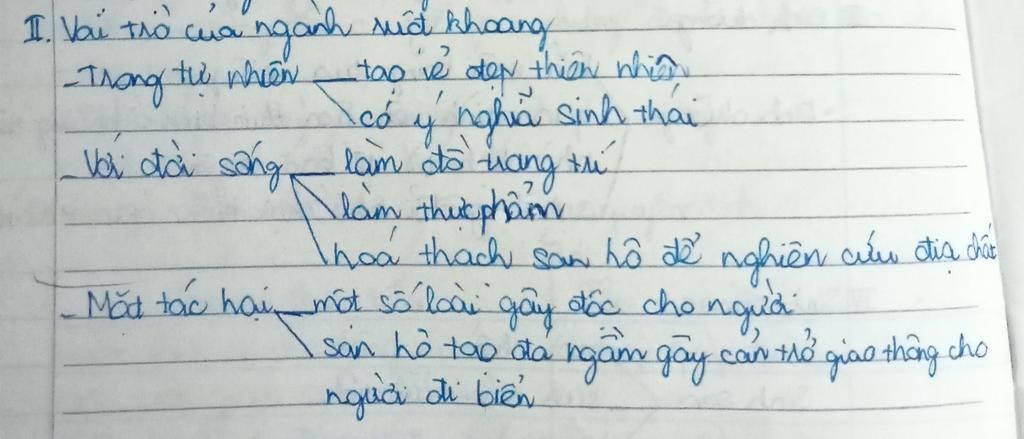 II. Vai trò của ngành ruột khoang
- Trong tự nhiên tạo vẻ đẹp thiên nhiên
có ý nghĩa sinh thái
- Với đời sống làm đồ trang trí
làm thực phẩm
hoá thạch san hô để nghiên cứu địa chất
- Mặt tác hại một số loài gây độc cho người
san hô tạo đá ngầm gây cản trở giao thông cho
người đi biển